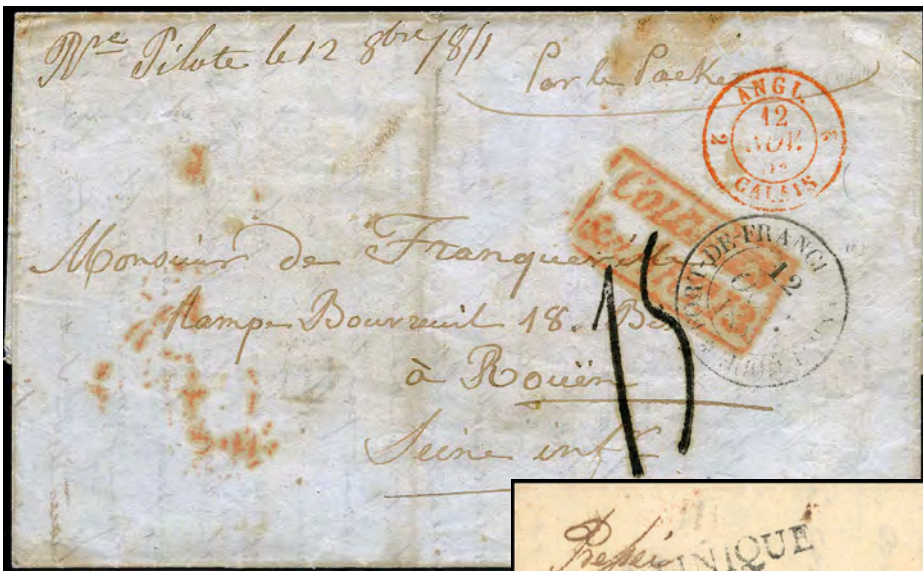 Rve Pilote le 12 8bre
Par le Packet
ANGL.
12
NOV.
2 CALAIS 2
Colonies
&c. Art. 13
FORT-DE-FRANCE
12
Monsieur de Franqueville
Rampe Bouvreuil 18. Bis
15
à Rouën
Seine infre
INIQUE